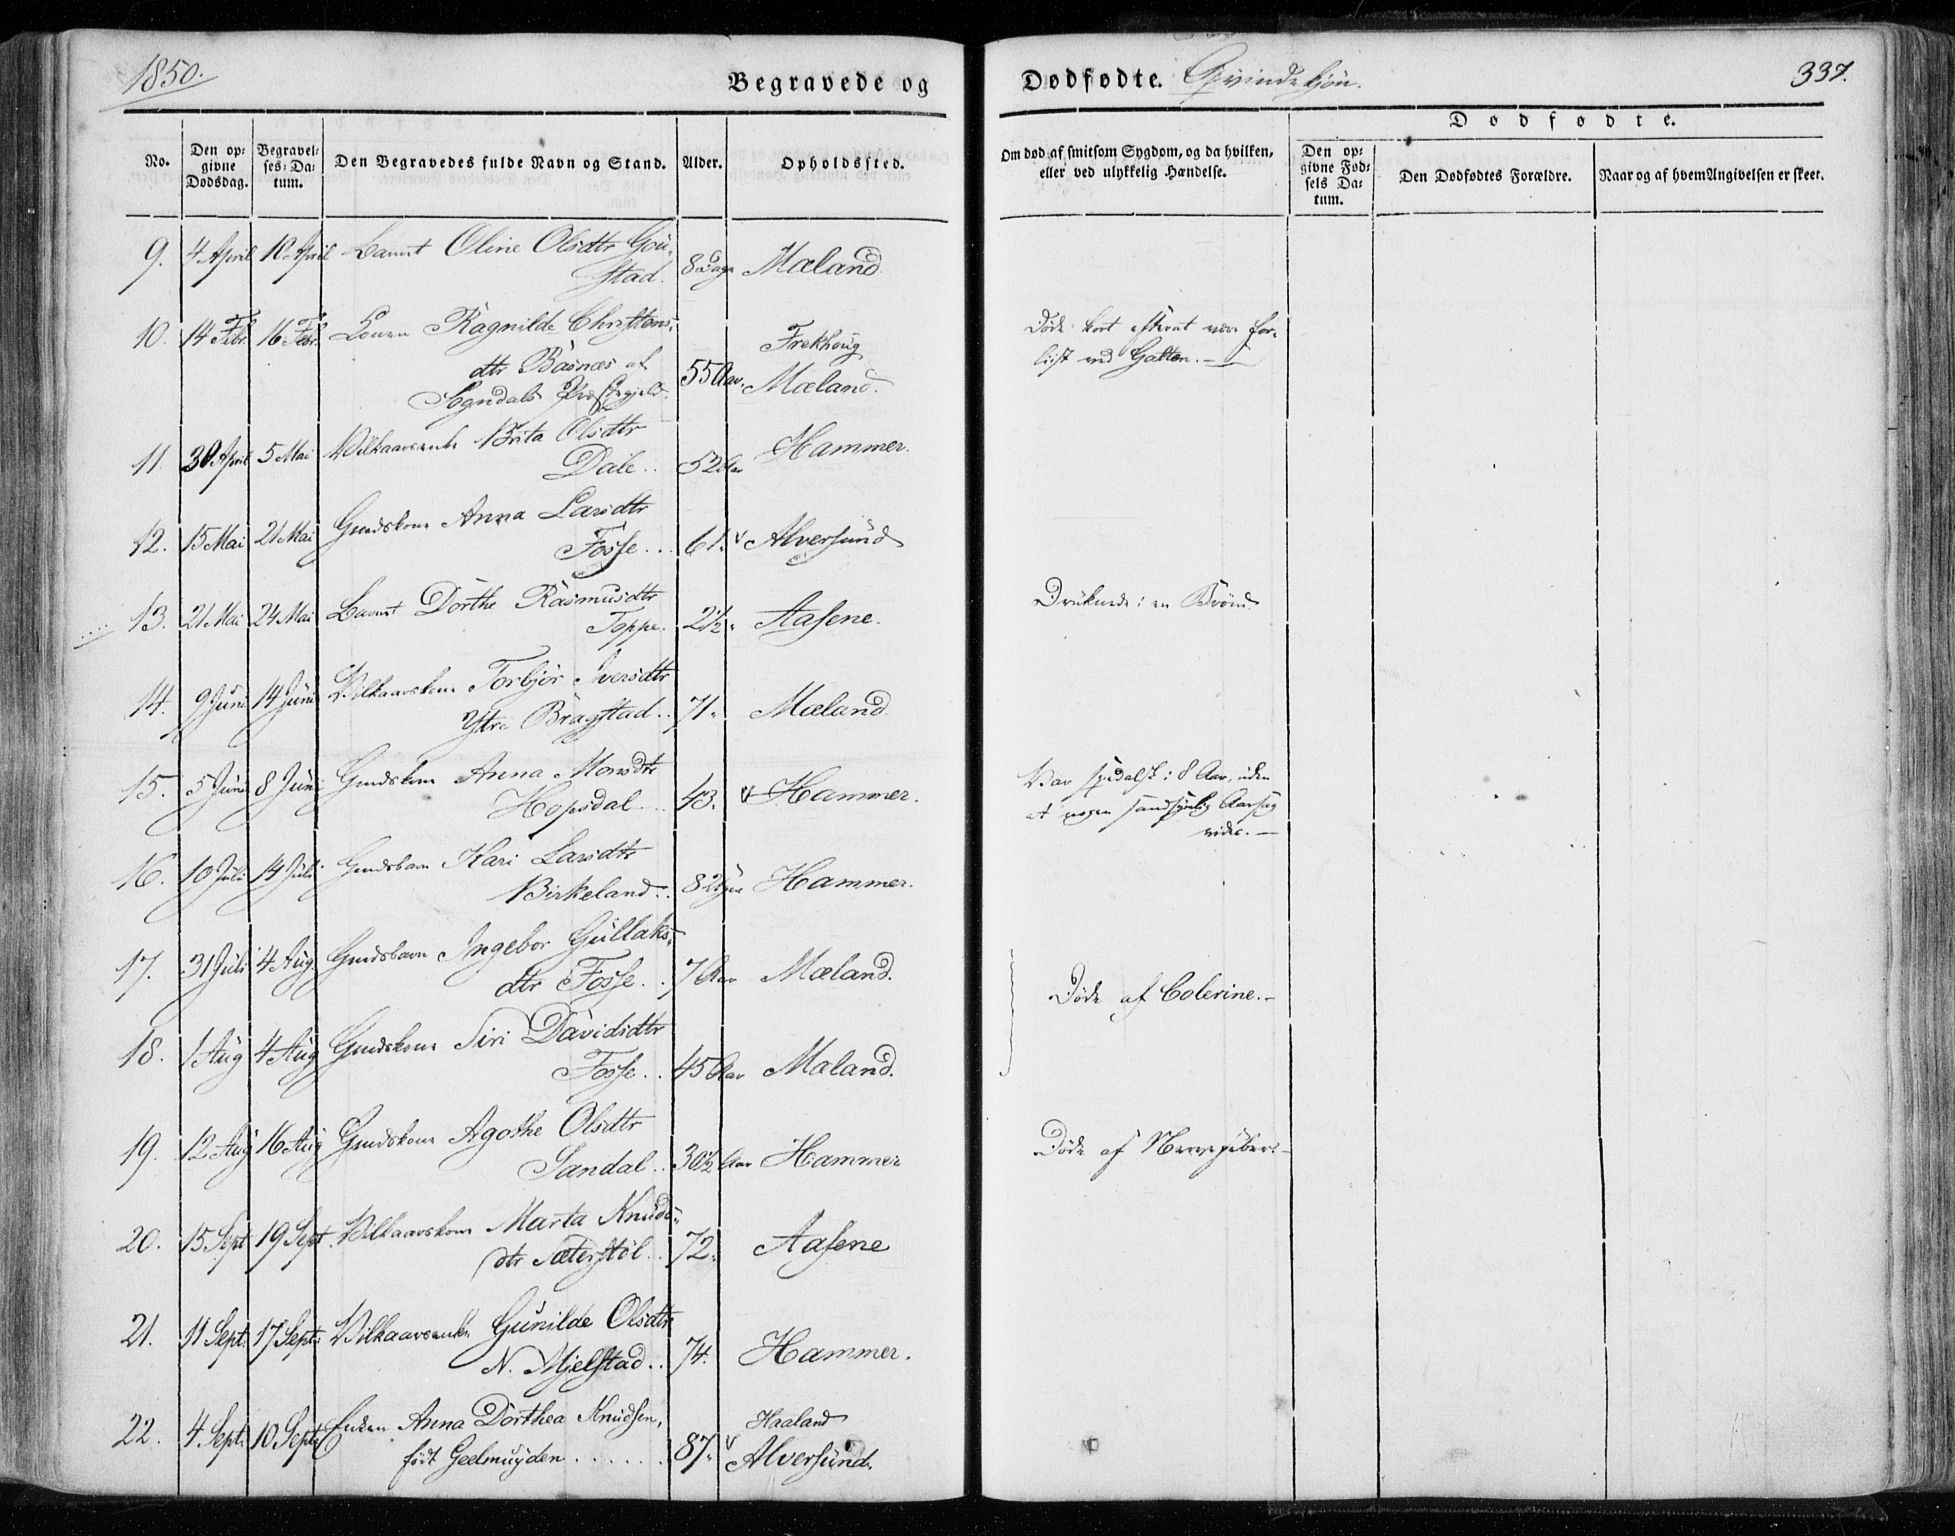 1850.
Begravede og
Dødfødte. Qvindekjøn.
337.
No.
Den op-
givne
Dødsdag.
Begravel-
ses-Da-
tum.
Den Begravedes fulde Navn og Stand.
Alder.
Opholdssted.
Om død af smitsom Sygdom, og da hvilken,
eller ved ulykkelig Hændelse.
Dødfødte.
Den op-
givne Fød-
sels Da-
tum.
Den Dødfødtes Forældre.
Naar og af hvem Angivelsen er skeet.
9. 4 April 10 April Barnet Oline Olsdtr Gou-
stad. 8 Dage Mæland
10. 14 Febr. 16 Febr. Konen Ragnilde Christens-
dtr Basnæs af
Sogndals Præstegjeld. 55 Aar. Frekhoug
Mæland.
Døde kort efterat være for-
liist ved Galten.
11. 30 April 5 Mai Vilkaarsenke Brita Olsdtr
Dale.. 52 Aar Hammer.
12. 15 Mai 21 Mai Gmdskone Anna Larsdtr
Fosse... 61. Alversund
13. 21 Mai 24 Mai Barnet Dorthe Rasmusdtr
Toppe. 2½. Aasene.
Druknede i en Brønd.
14. 9 Juni 14 Juni Vilkaarskone Torbjør Iversdtr
Ytre Bragstad.. 71. Mæland
15. 5 Juni 8 Juni Gmdskone Anna Monsdtr
Hopsdal... 43. Hammer.
Var spedalsk i 8 Aar, uden
at nogen sandsynlig Aarsag
vides.
16. 10 Juli 14 Juli Gmdsbarn Kari Larsdtr
Birkeland.. 8 Uger Hammer.
17. 31 Juli 4 Aug. Gmdsbarn Ingebor Gullaks-
dtr Fosse.. 7 Aar Mæland.
Døde af Colerine.
18. 1 Aug 4 Aug Gmdskone Siri Davidsdtr
Fosse.. 45 Aar Mæland.
19. 12 Aug 16 Aug Gmdskone Agothe Olsdtr
Sandal.. 30½ Aar Hammer
Døde af Nervefeber.
20. 15 Sept 19 Sept. Vilkaarskone Marta Knuds-
dtr Sæterstøl.. 72. Aasene
21. 11 Sept. 17 Sept. Vilkaarsenke Gunilde Olsdtr
N. Mjelstad.. 74. Hammer.
22. 4 Sept. 10 Sept. Enken Anna Dorthea Knudsen,
født Geelmuyden...... 87. Haaland
Alversund.